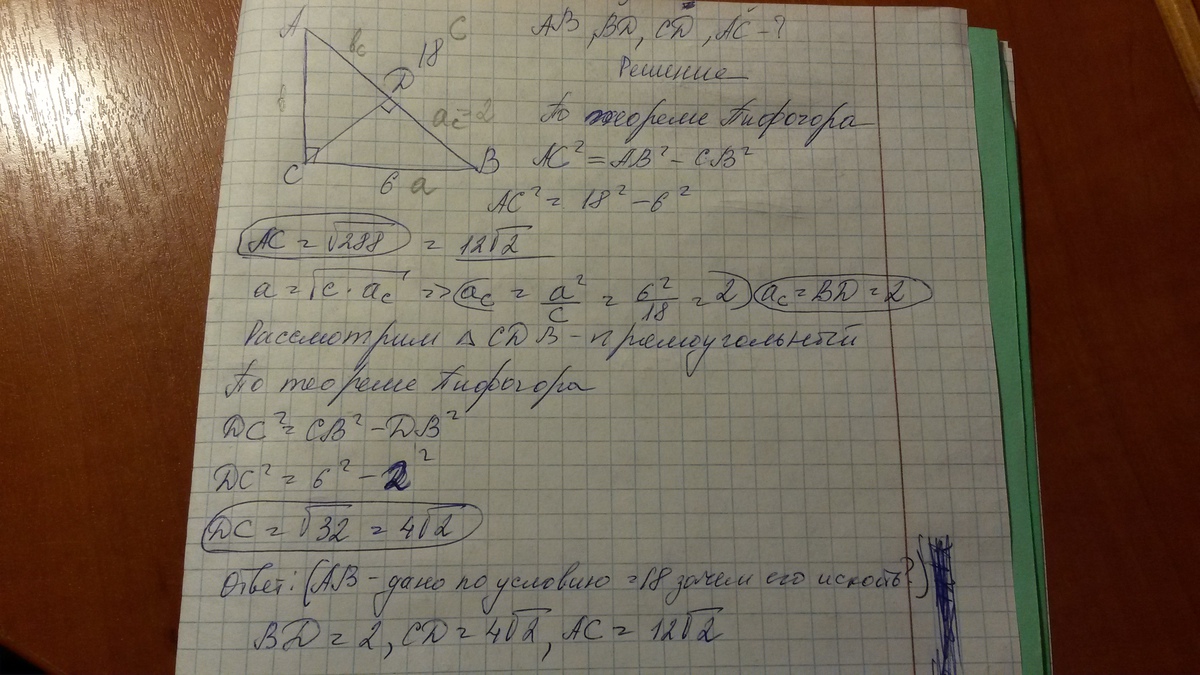 AB, BD, CD, AC - ?
Решение
A
bc
18
C
D
b
ac = 2
C
6
a
B
По теореме Пифогора
AC² = AB² - CB²
AC² = 18² - 6²
AC = √288 = 12√2
a = √c · ac => ac = a²/c = 6²/18 = 2 ac = BD = 2
Рассмотрим △ CDB - прямоугольный
По теореме Пифогора
DC² = CB² - DB²
DC² = 6² - 2²
DC = √32 = 4√2
Ответ: (AB - дано по условию = 18 зачем его искать?)
BD = 2, CD = 4√2, AC = 12√2